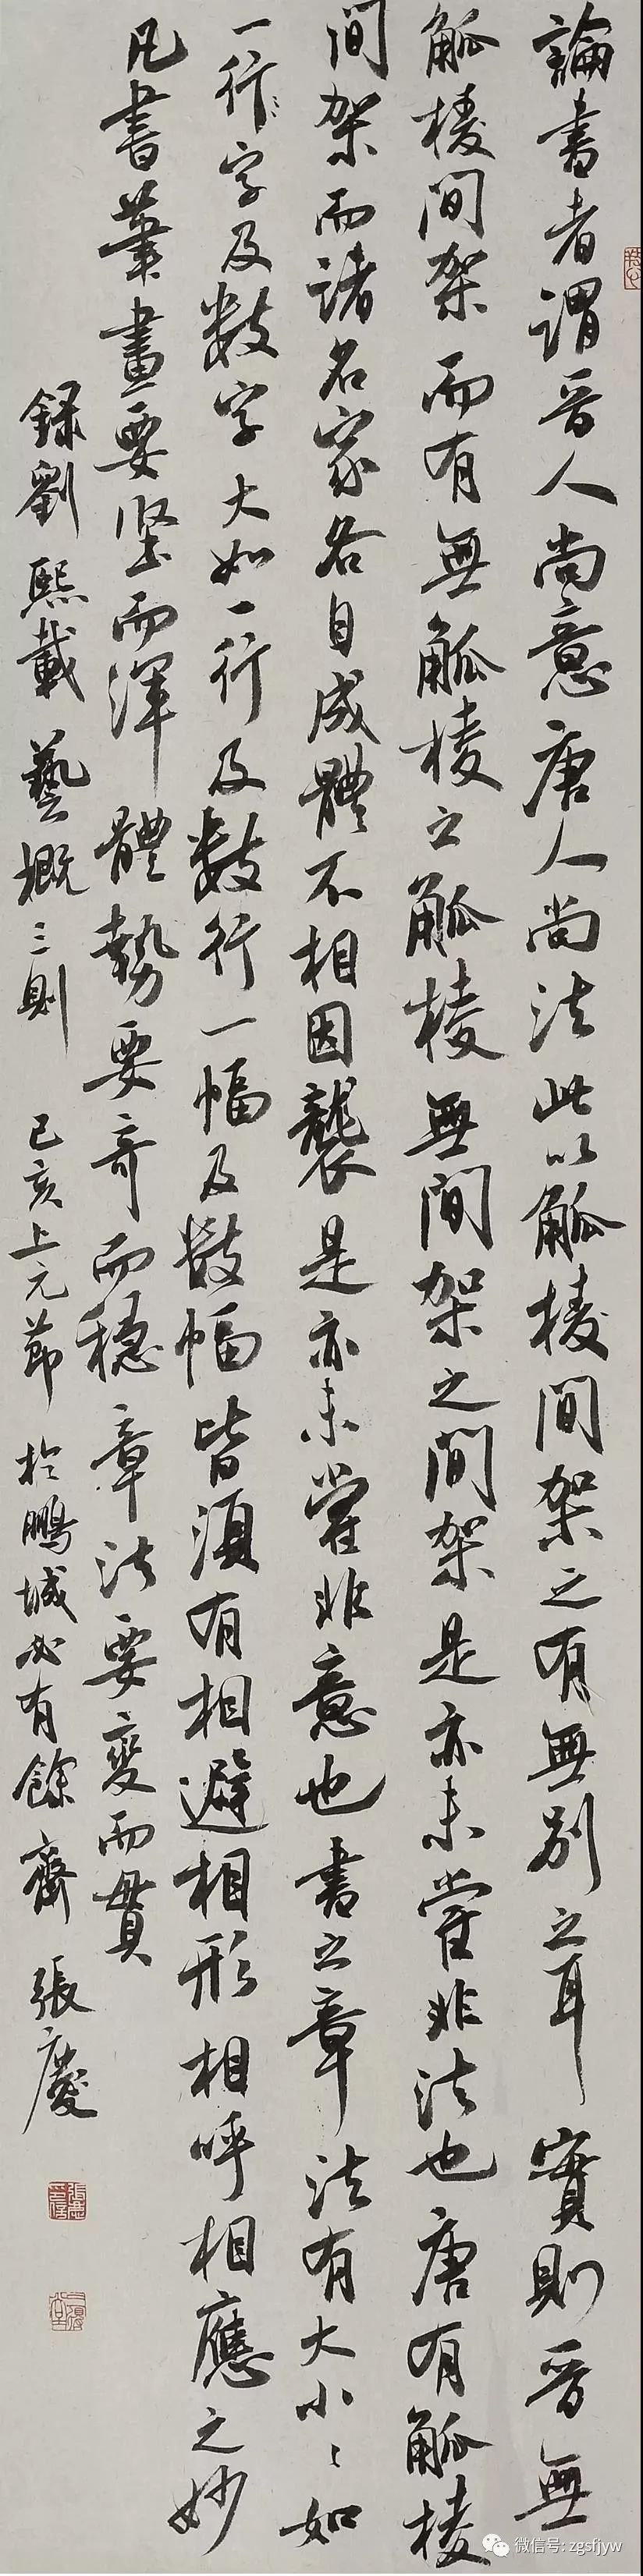 論書者謂晉人尚意唐人尚法此以觚棱間架之有無別之耳實則晉無
觚棱間架而有無觚棱之觚棱無間架之間架是亦未嘗非法也唐有觚棱
間架而諸名家各自成體不相因襲是亦未嘗非意也書之章法有大小小如
一行字及數字大如一行及數行一幅及數幅皆須有相避相形相呼相應之妙
凡書筆畫要坚而渾體勢要奇而穩章法要變而貫
錄劉熙載藝概三則 己亥上元節於鵬城必有餘齋 張慶
微信号: zgsfjyw